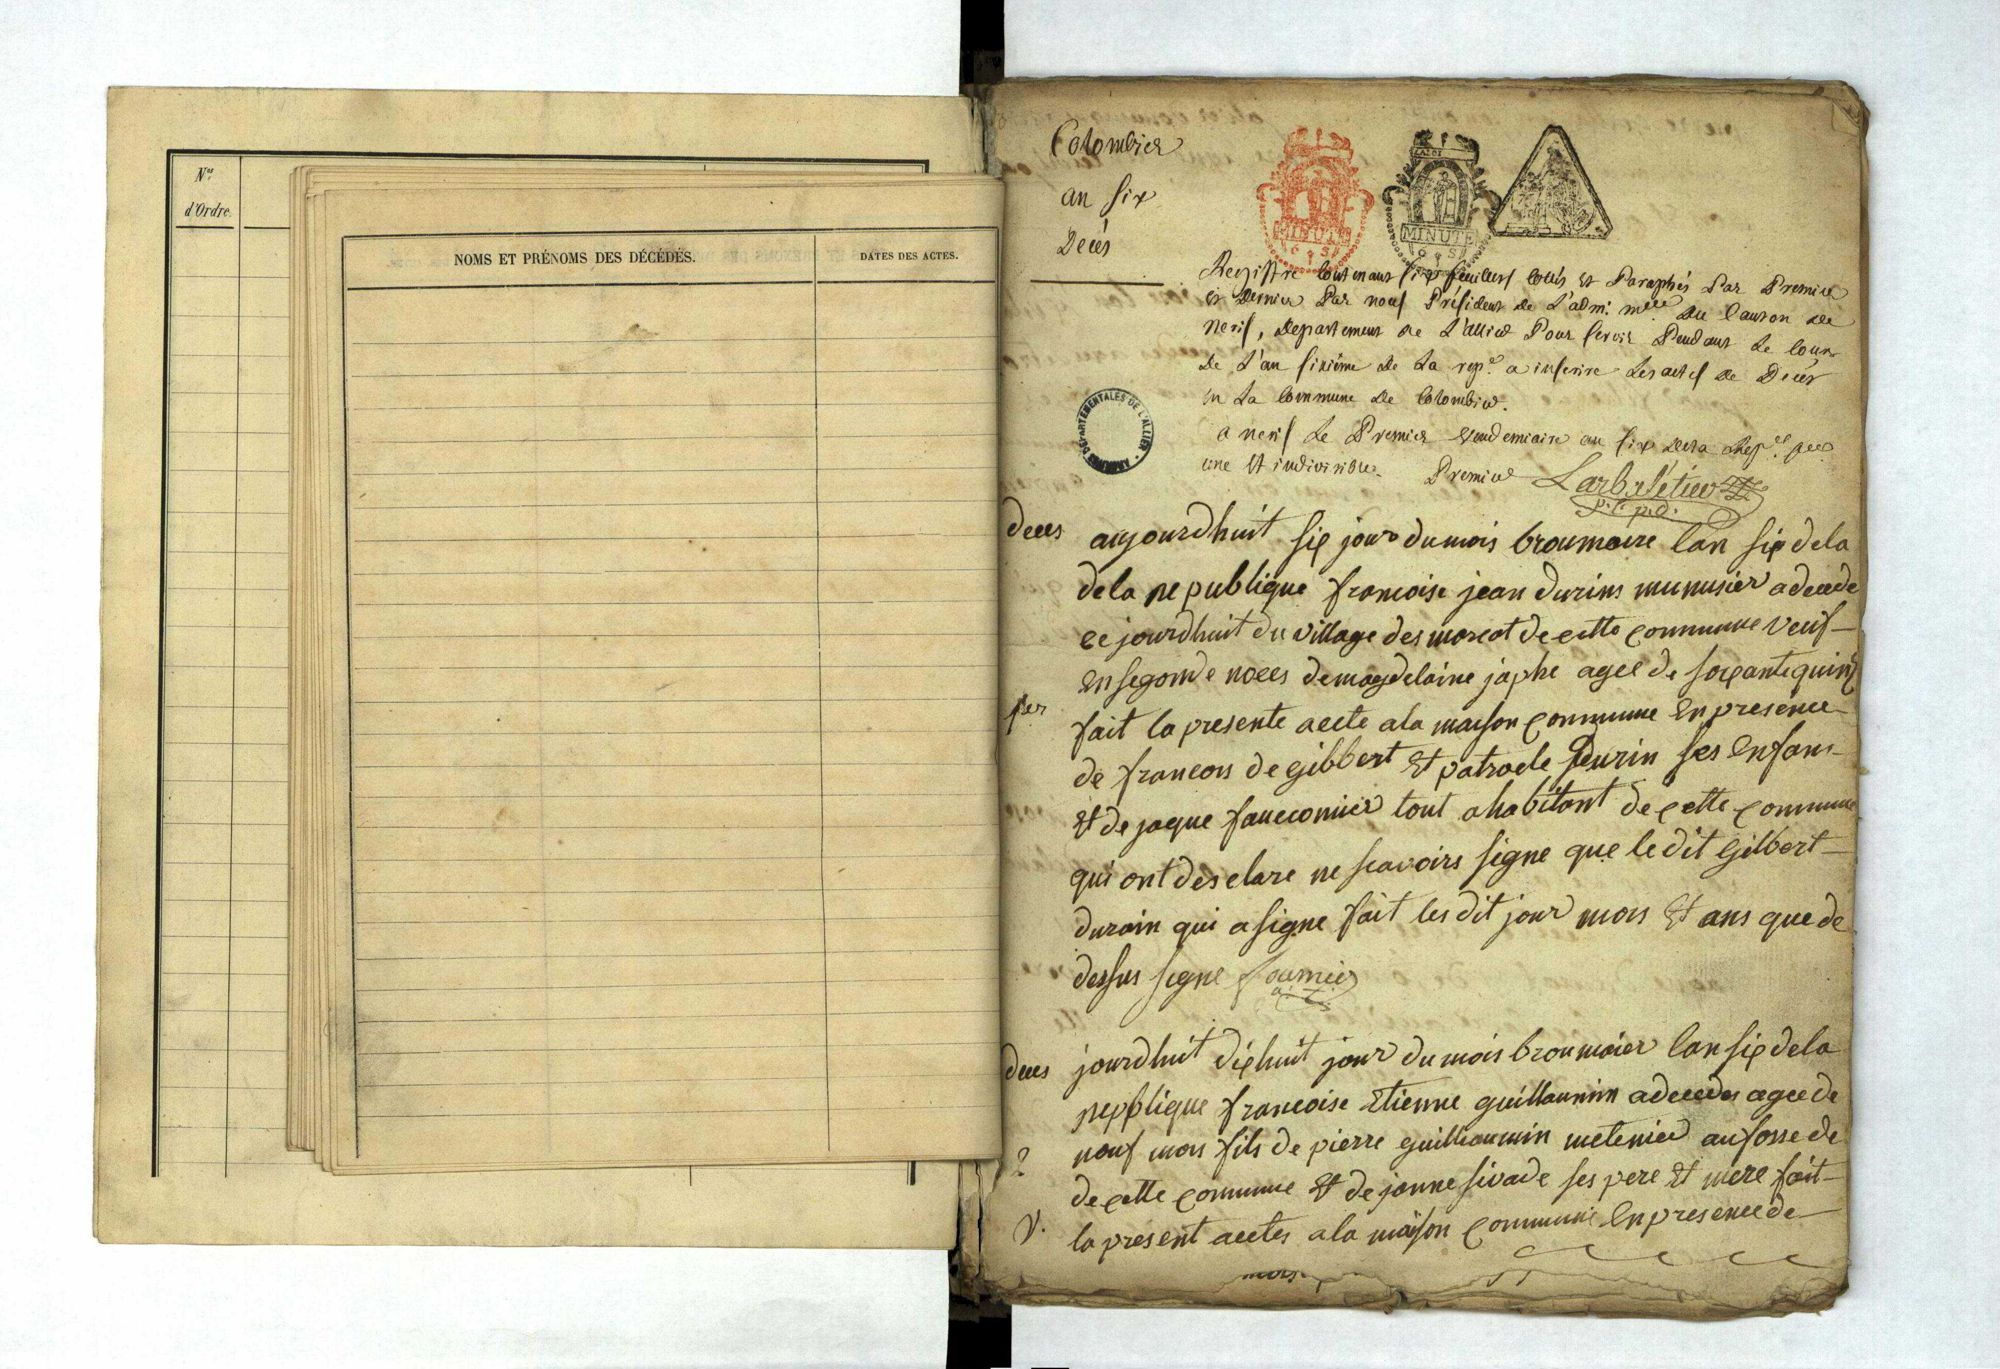 Nos
d'Ordre.
NOMS ET PRÉNOMS DES DÉCÉDÉS.
DATES DES ACTES.
Colombier
an six
Décès
MINUTE
MINUTE
ARCHIVES DÉPARTEMENTALES DE L'ALLIER
Registre contenant six feuillets cottés et Paraphés Par Premier
et dernier Par nous Président de L'adm. mple Du Canton de
neris, département de L'allier Pour servir Pendant Le cour
de L'an sixième de La rep.e a inserire Les actes de Décès
en La Commune de Colombier.
a neris Le Premier vendemiaire an six de la Rep.e
une et indivisible. Premier Larbelétier
p. t. p. d.
deces aujourdhuit six jour du mois broumaire lan six dela
dela republique francoise jean durins munusier a decede
ce jourdhuit du village des morcot de cette commune veuf
en segonde noces de magdelaine japhe agee de soixante quinz
per fait la presente acete ala maison commune en presence
de francois de gibbert et patrocle durin ses enfans
et de jaque fauconnier tout a habitant de cette commune
qui ont desclare ne scavoirs signe que le dit gilbert
durain qui a signe fait les dit jour mois et ans que de
dessus signe
deces jourdhuit dixhuit jour du mois broumaier lan six dela
repblique francoise etienne guillaumin a decedes agee de
2 neuf mois fils de pierre guillhaumin metenier au fosse de
de cette commune et de janne sivade ses pere et mere fait
V. la present acetes a la maison commune en presence de